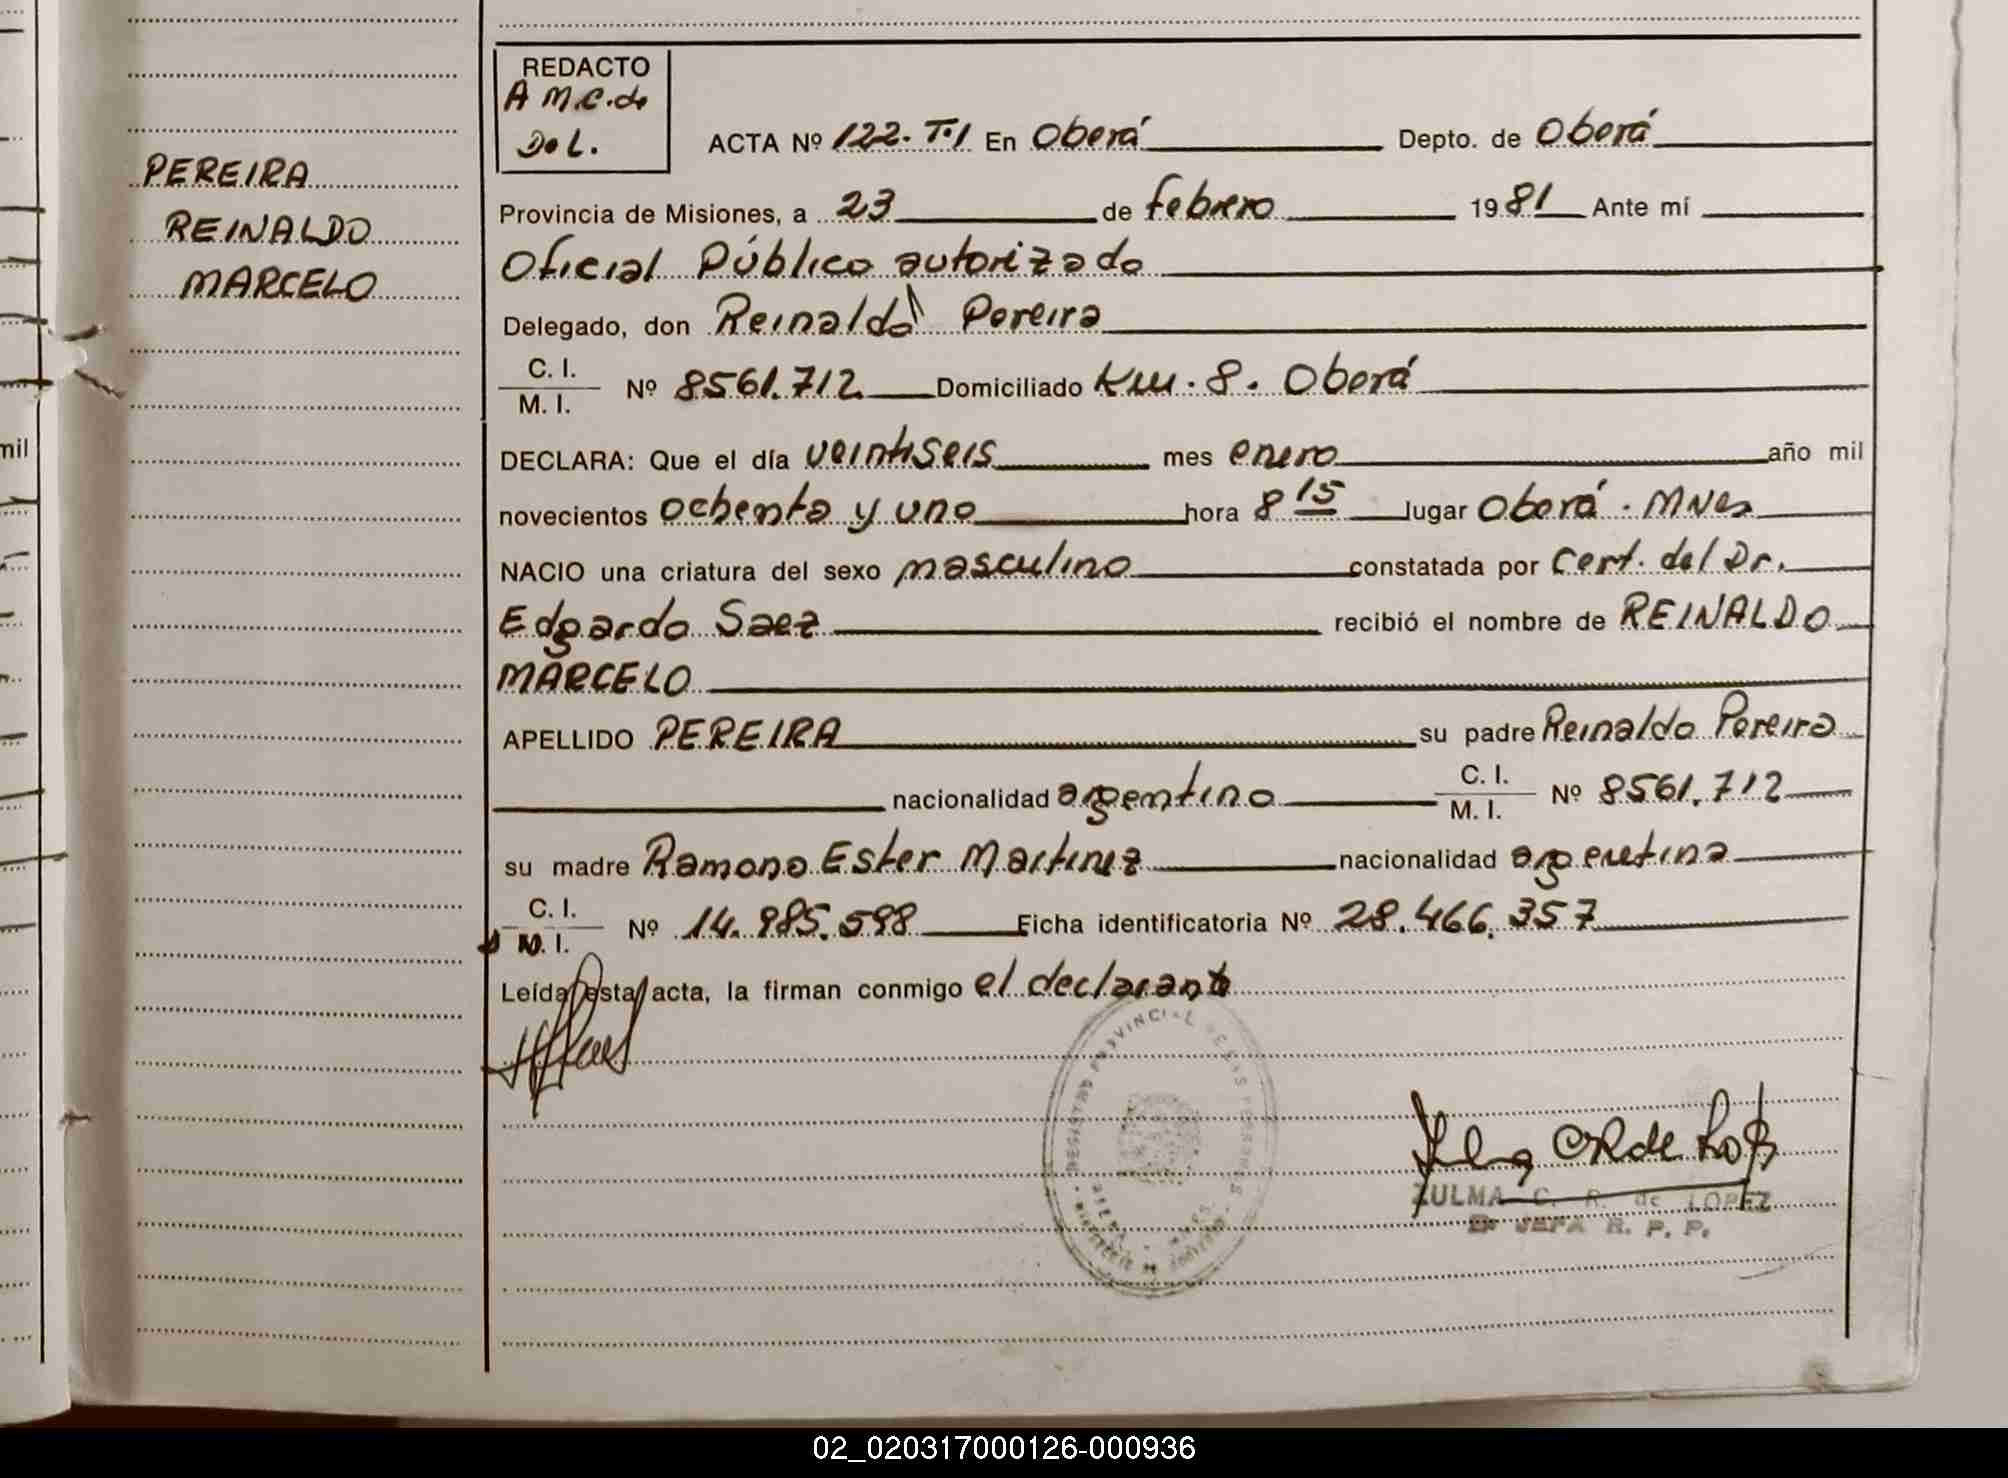 REDACTO
A M.C. de
De L.
ACTA Nº 122. T.I En Oberá Depto. de Oberá
PEREIRA
REINALDO
MARCELO
Provincia de Misiones, a 23 de febrero 1981 Ante mí
Oficial Público autorizado
Delegado, don Reinaldo Pereira
C. I.
M. I. Nº 8561.712 Domiciliado Km. 8. Oberá
DECLARA: Que el día veintiseis mes enero año mil
novecientos ochenta y uno hora 8 15 lugar Oberá. Mnes
NACIO una criatura del sexo masculino constatada por Cert. del Dr.
Edgardo Saez recibió el nombre de REINALDO
MARCELO
APELLIDO PEREIRA su padre Reinaldo Pereira
nacionalidad argentino C. I.
M. I. Nº 8561.712
su madre Ramona Ester Martinez nacionalidad argentina
C. I.
M. I. Nº 14.985.598 Ficha identificatoria Nº 28.466.357
Leída esta acta, la firman conmigo el declarante
REGISTRO PROVINCIAL DE LAS PERSONAS
ZULMA C. R. de LOPEZ
JEFA R. P. P.
mil
02_020317000126-000936